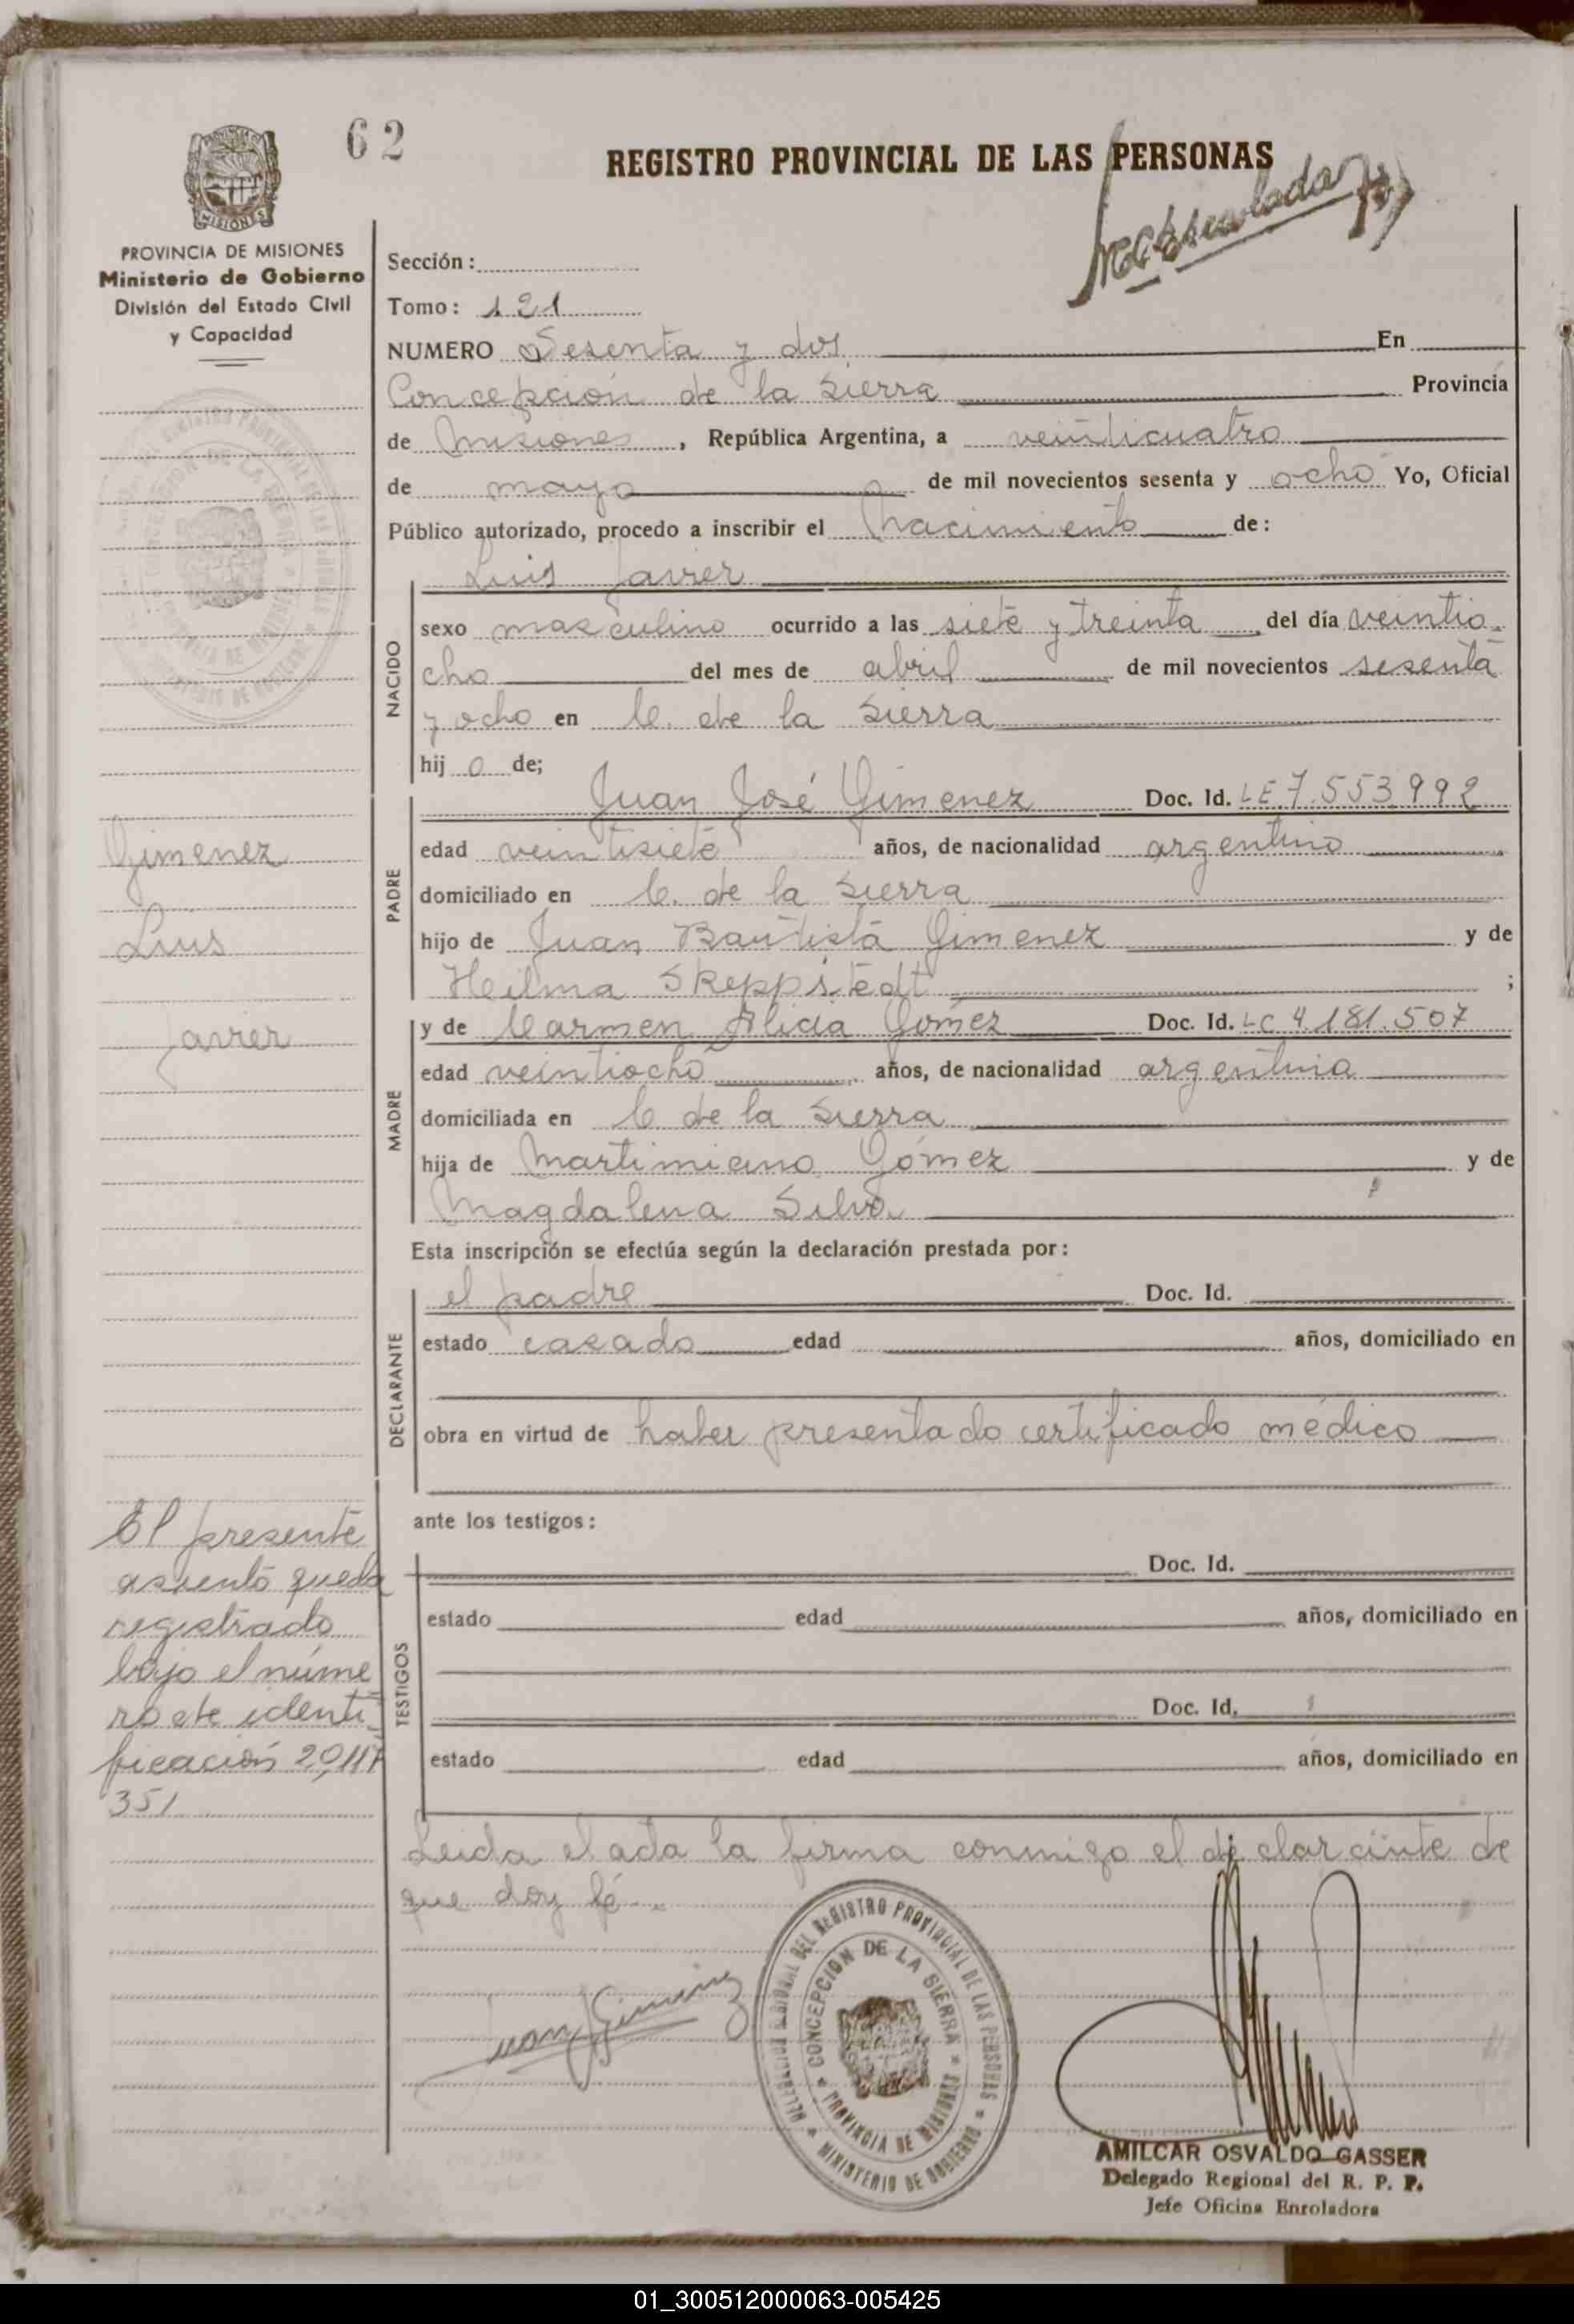 62
REGISTRO PROVINCIAL DE LAS PERSONAS
PROVINCIA DE MISIONES
Ministerio de Gobierno
División del Estado Civil
y Capacidad
Sección:
Tomo: 121
NUMERO Sesenta y dos En
Concepción de la Sierra Provincia
de Misiones, República Argentina, a veinticuatro
de mayo de mil novecientos sesenta y ocho Yo, Oficial
Público autorizado, procedo a inscribir el nacimiento de:
Luis Javier
NACIDO
sexo masculino ocurrido a las siete y treinta del día veintio-
cho del mes de abril de mil novecientos sesenta
y ocho en C. de la Sierra
hijo de;
PADRE
Juan José Gimenez Doc. Id. LE 7.553.992
edad veintisiete años, de nacionalidad argentino
domiciliado en C. de la Sierra
hijo de Juan Bautista Gimenez y de
Heilma Skeppstedt ;
MADRE
y de Carmen Alicia Gomez Doc. Id. LC 4.181.507
edad veintiocho años, de nacionalidad argentina
domiciliada en C de la Sierra
hija de Martimiano Gómez y de
Magdalena Silva
Esta inscripción se efectúa según la declaración prestada por:
DECLARANTE
el padre Doc. Id.
estado casado edad años, domiciliado en
obra en virtud de haber presentado certificado médico
ante los testigos:
TESTIGOS
Doc. Id.
estado edad años, domiciliado en
Doc. Id.
estado edad años, domiciliado en
Leida el acta la firma conmigo el declarante de
que doy fé.
Gimenez
Luis
Javier
El presente
asiento queda
registrado
bajo el núme
ro de identi-
ficación 20,117
351
Juan J Gimenez
DEL REGISTRO PROVINCIAL DE LAS PERSONAS * MINISTERIO DE GOBIERNO *
CONCEPCION DE LA SIERRA * PROVINCIA DE MISIONES *
AMILCAR OSVALDO GASSER
Delegado Regional del R. P. P.
Jefe Oficina Enroladora
01_300512000063-005425